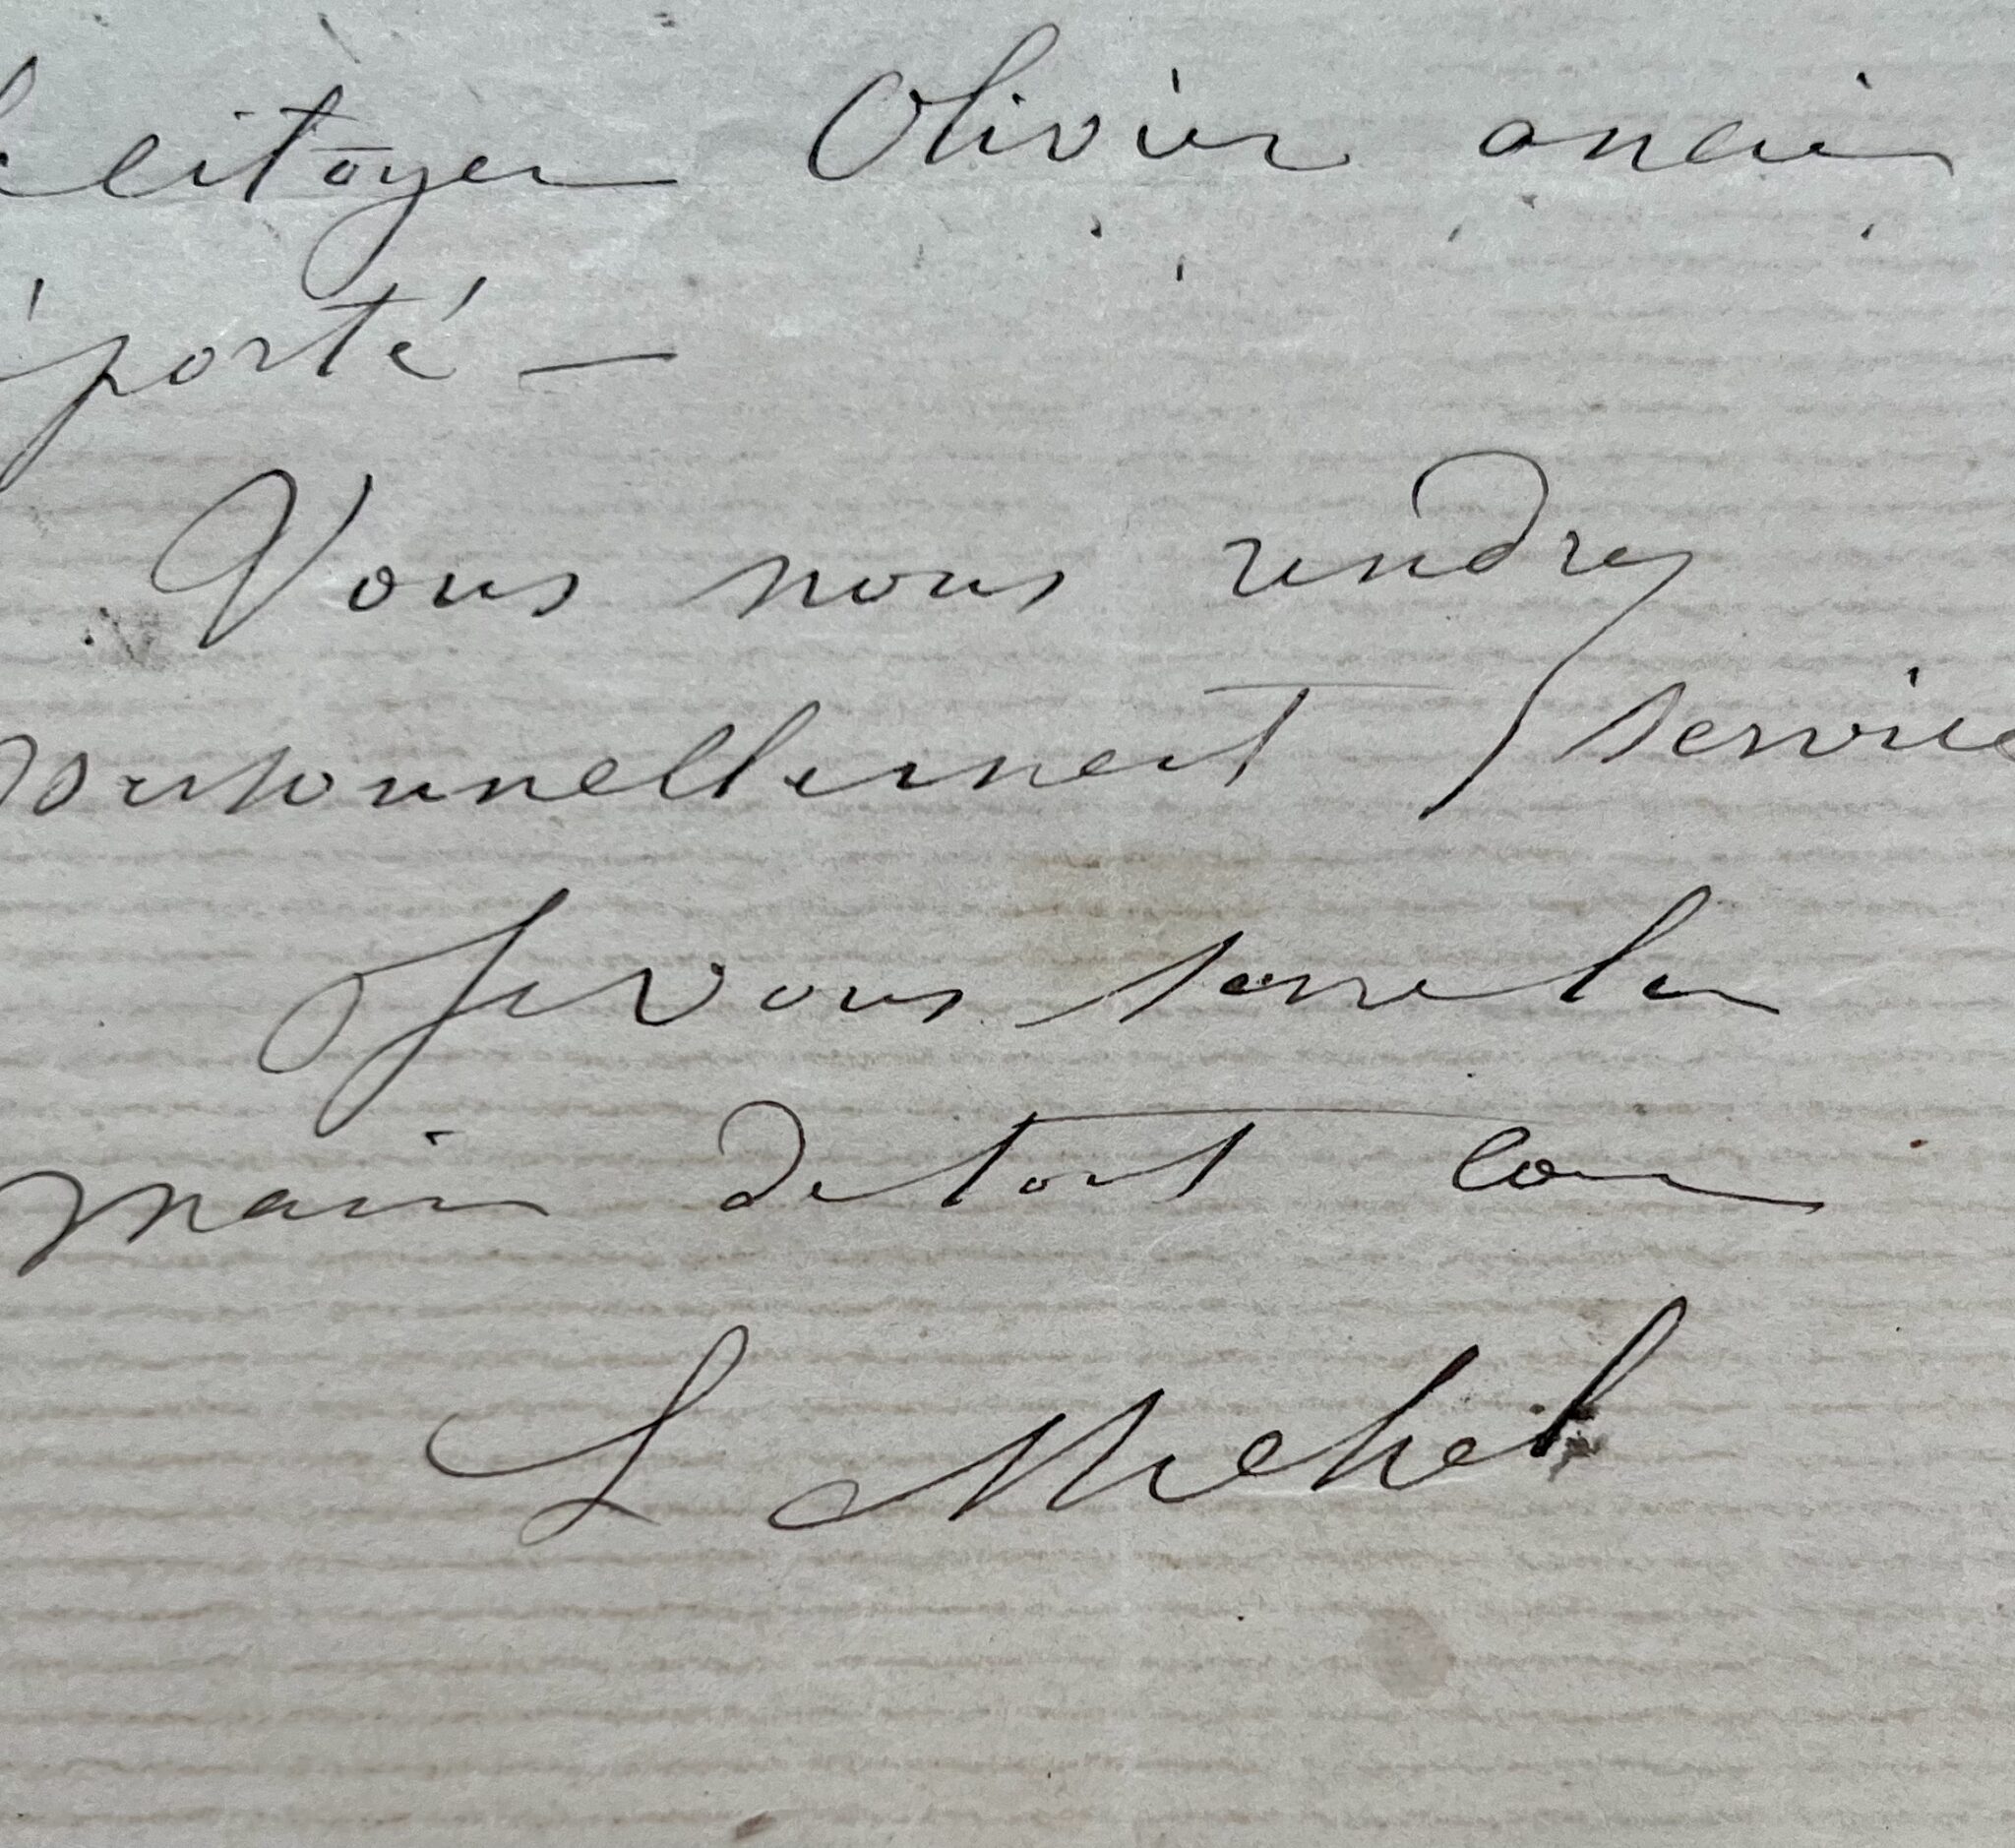 le citoyen Olivier ancien
éporté —
Vous nous rendrez
personnellement service
Je vous serre la
main de tout cœur
L Michel